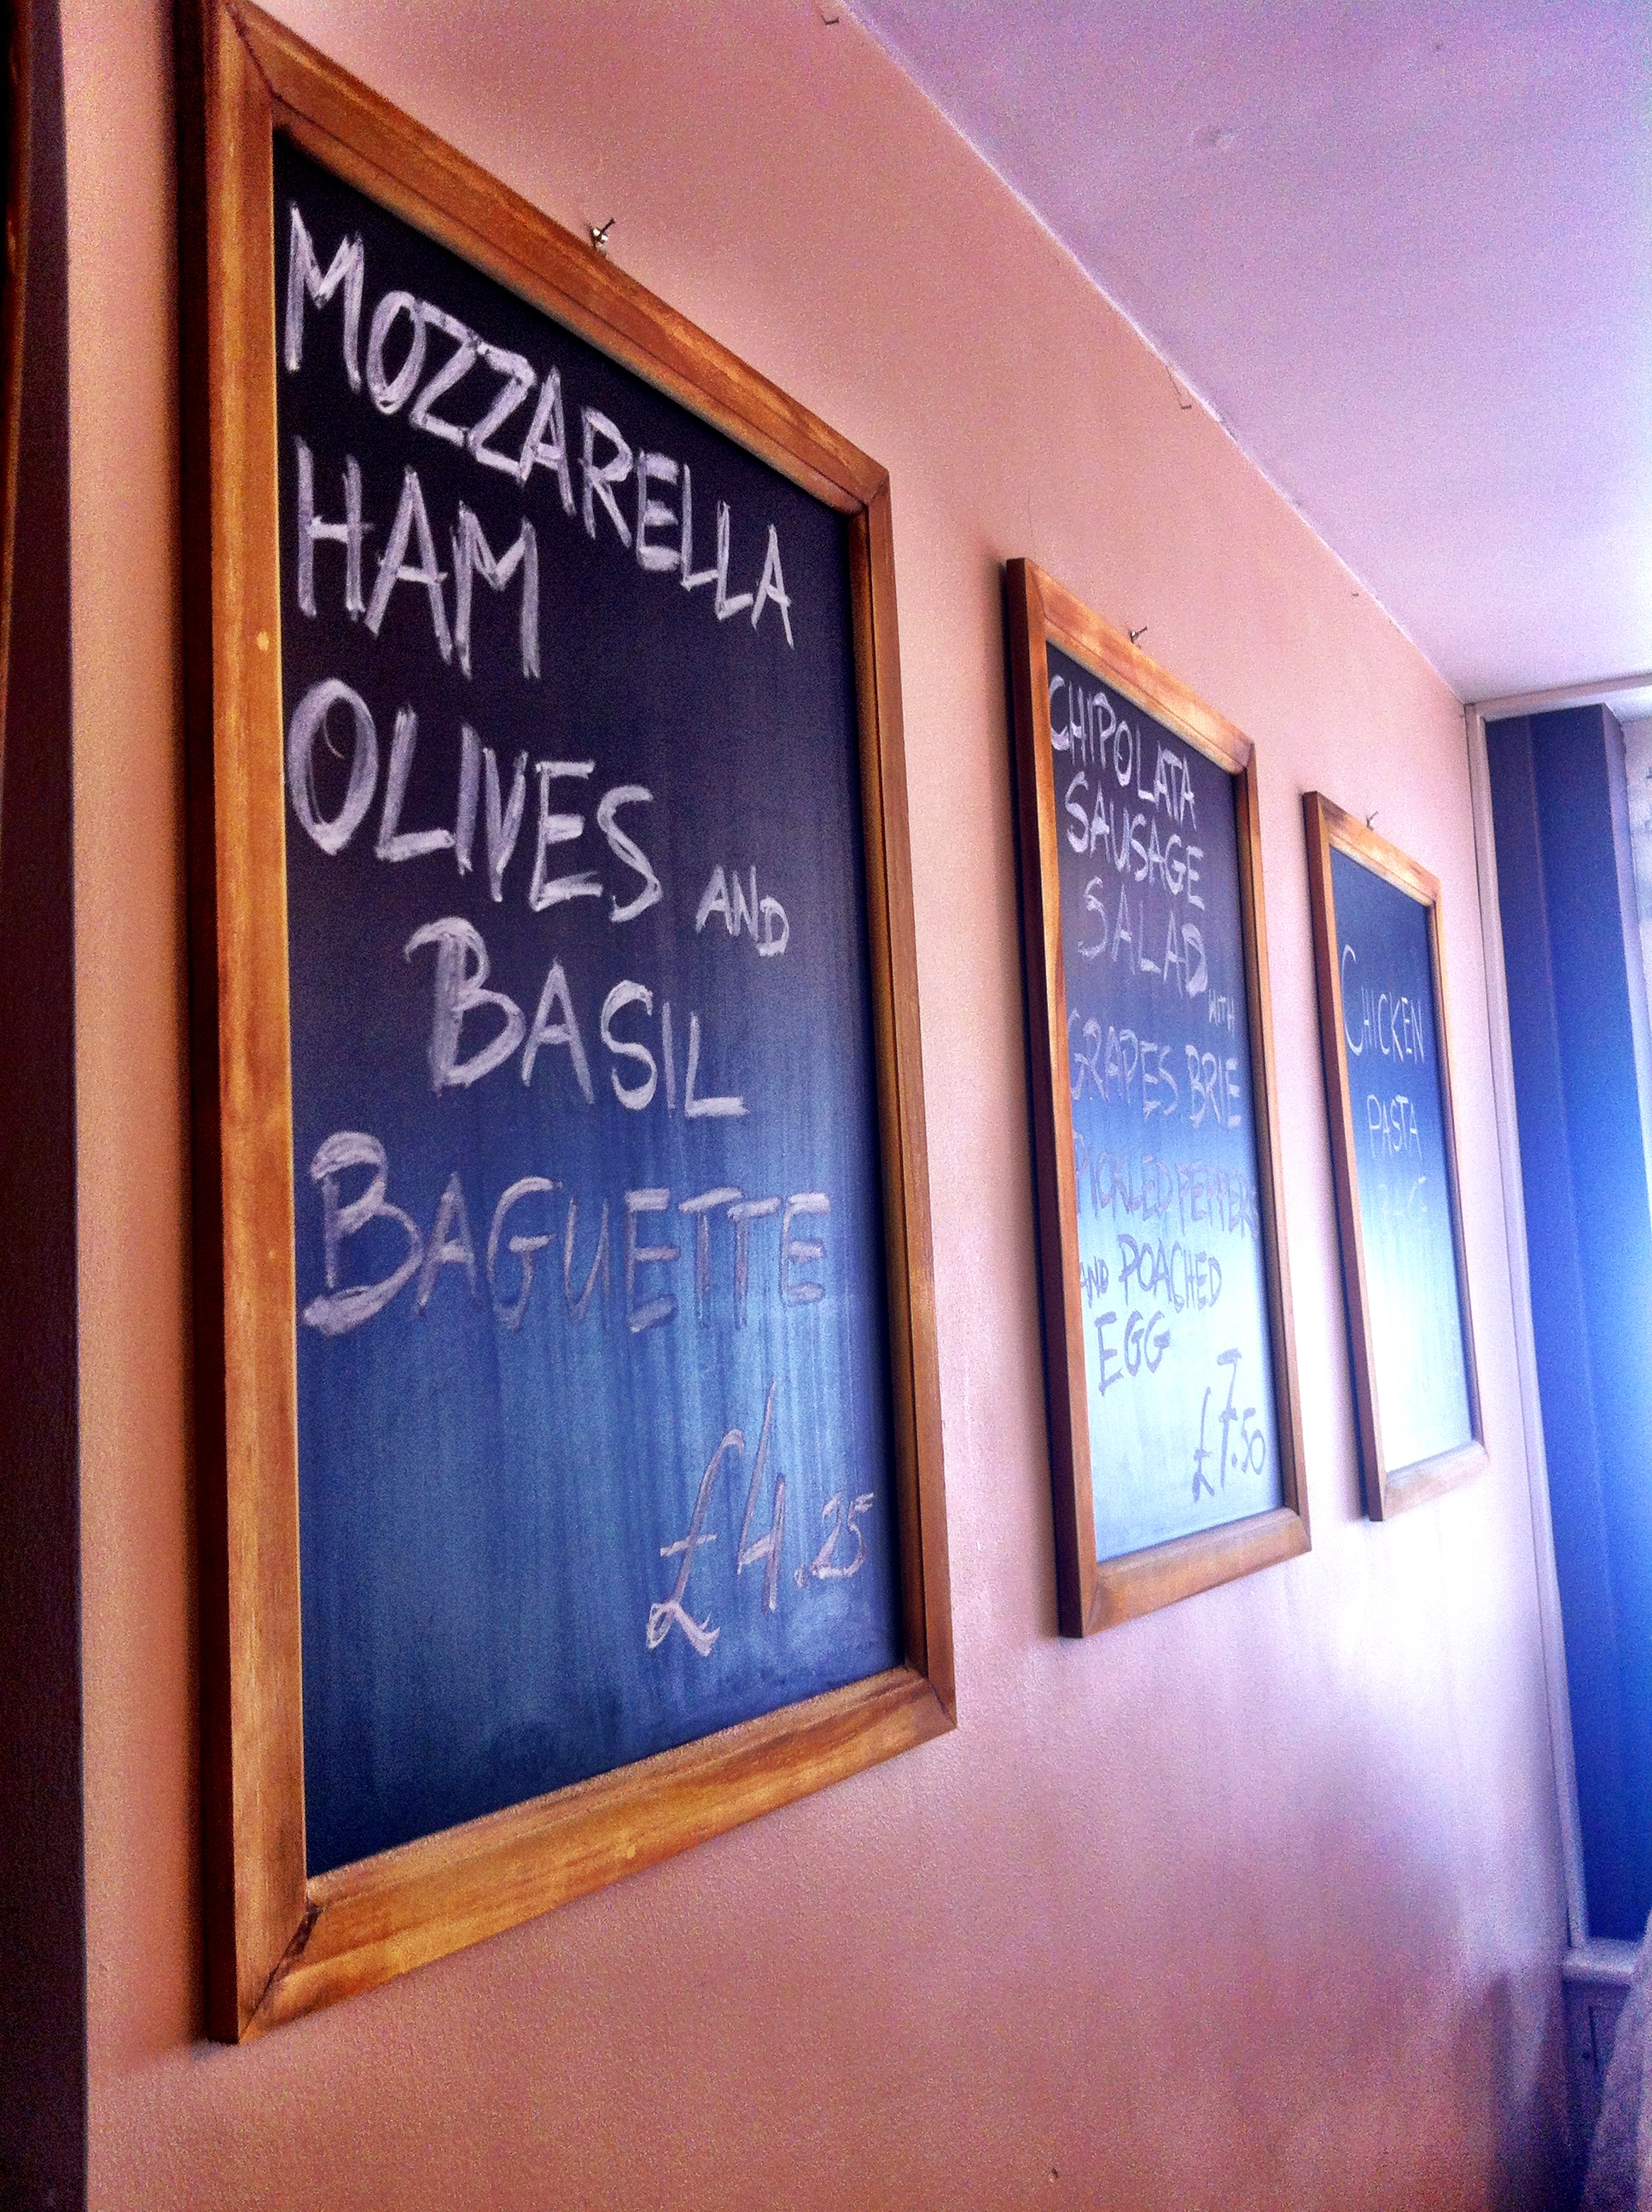 MOZZARELLA
HAM
OLIVES AND
BASIL
BAGUETTE
£4.25
CHIPOLATA
SAUSAGE
SALAD WITH
GRAPES BRIE
PICKLED PEPPERS
AND POACHED
EGG
£7.50
CHICKEN
PASTA